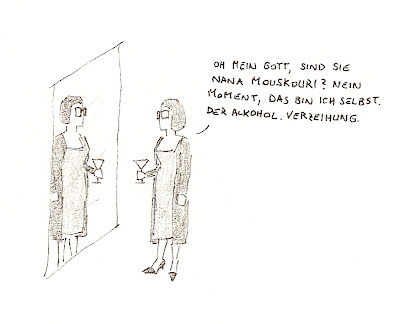 OH MEIN GOTT, SIND SIE
NANA MOUSKOURI? NEIN
MOMENT, DAS BIN ICH SELBST.
DER ALKOHOL. VERZEIHUNG.